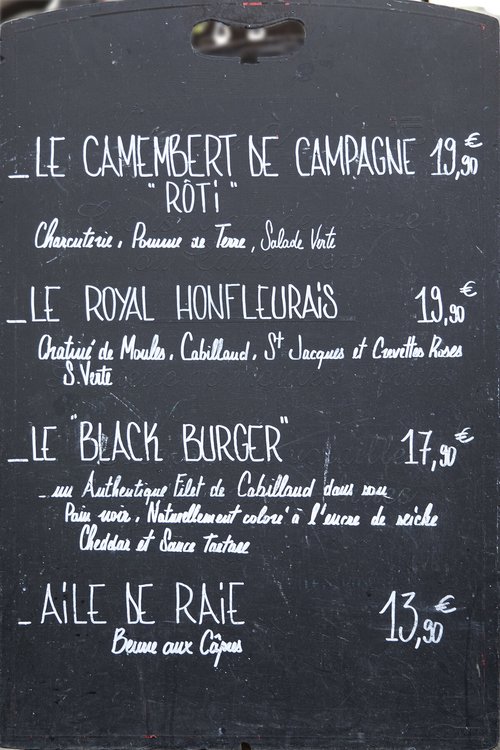 _LE CAMEMBERT DE CAMPAGNE 19,90€
"RÔTi"
Charcuterie, Pomme de Terre, Salade Verte
_LE ROYAL HONFLEURAiS 19,90€
Gratiné de Moules, Cabillaud, St Jacques et Crevettes Roses
S.Verte
_LE "BLACK BURGER" 17,90€
_un Authentique Filet de Cabillaud dans son
Pain noir, Naturellement coloré à l'encre de seiche
Cheddar et Sauce tartare
_AiLE DE RAiE 13,90€
Beurre aux Câpres